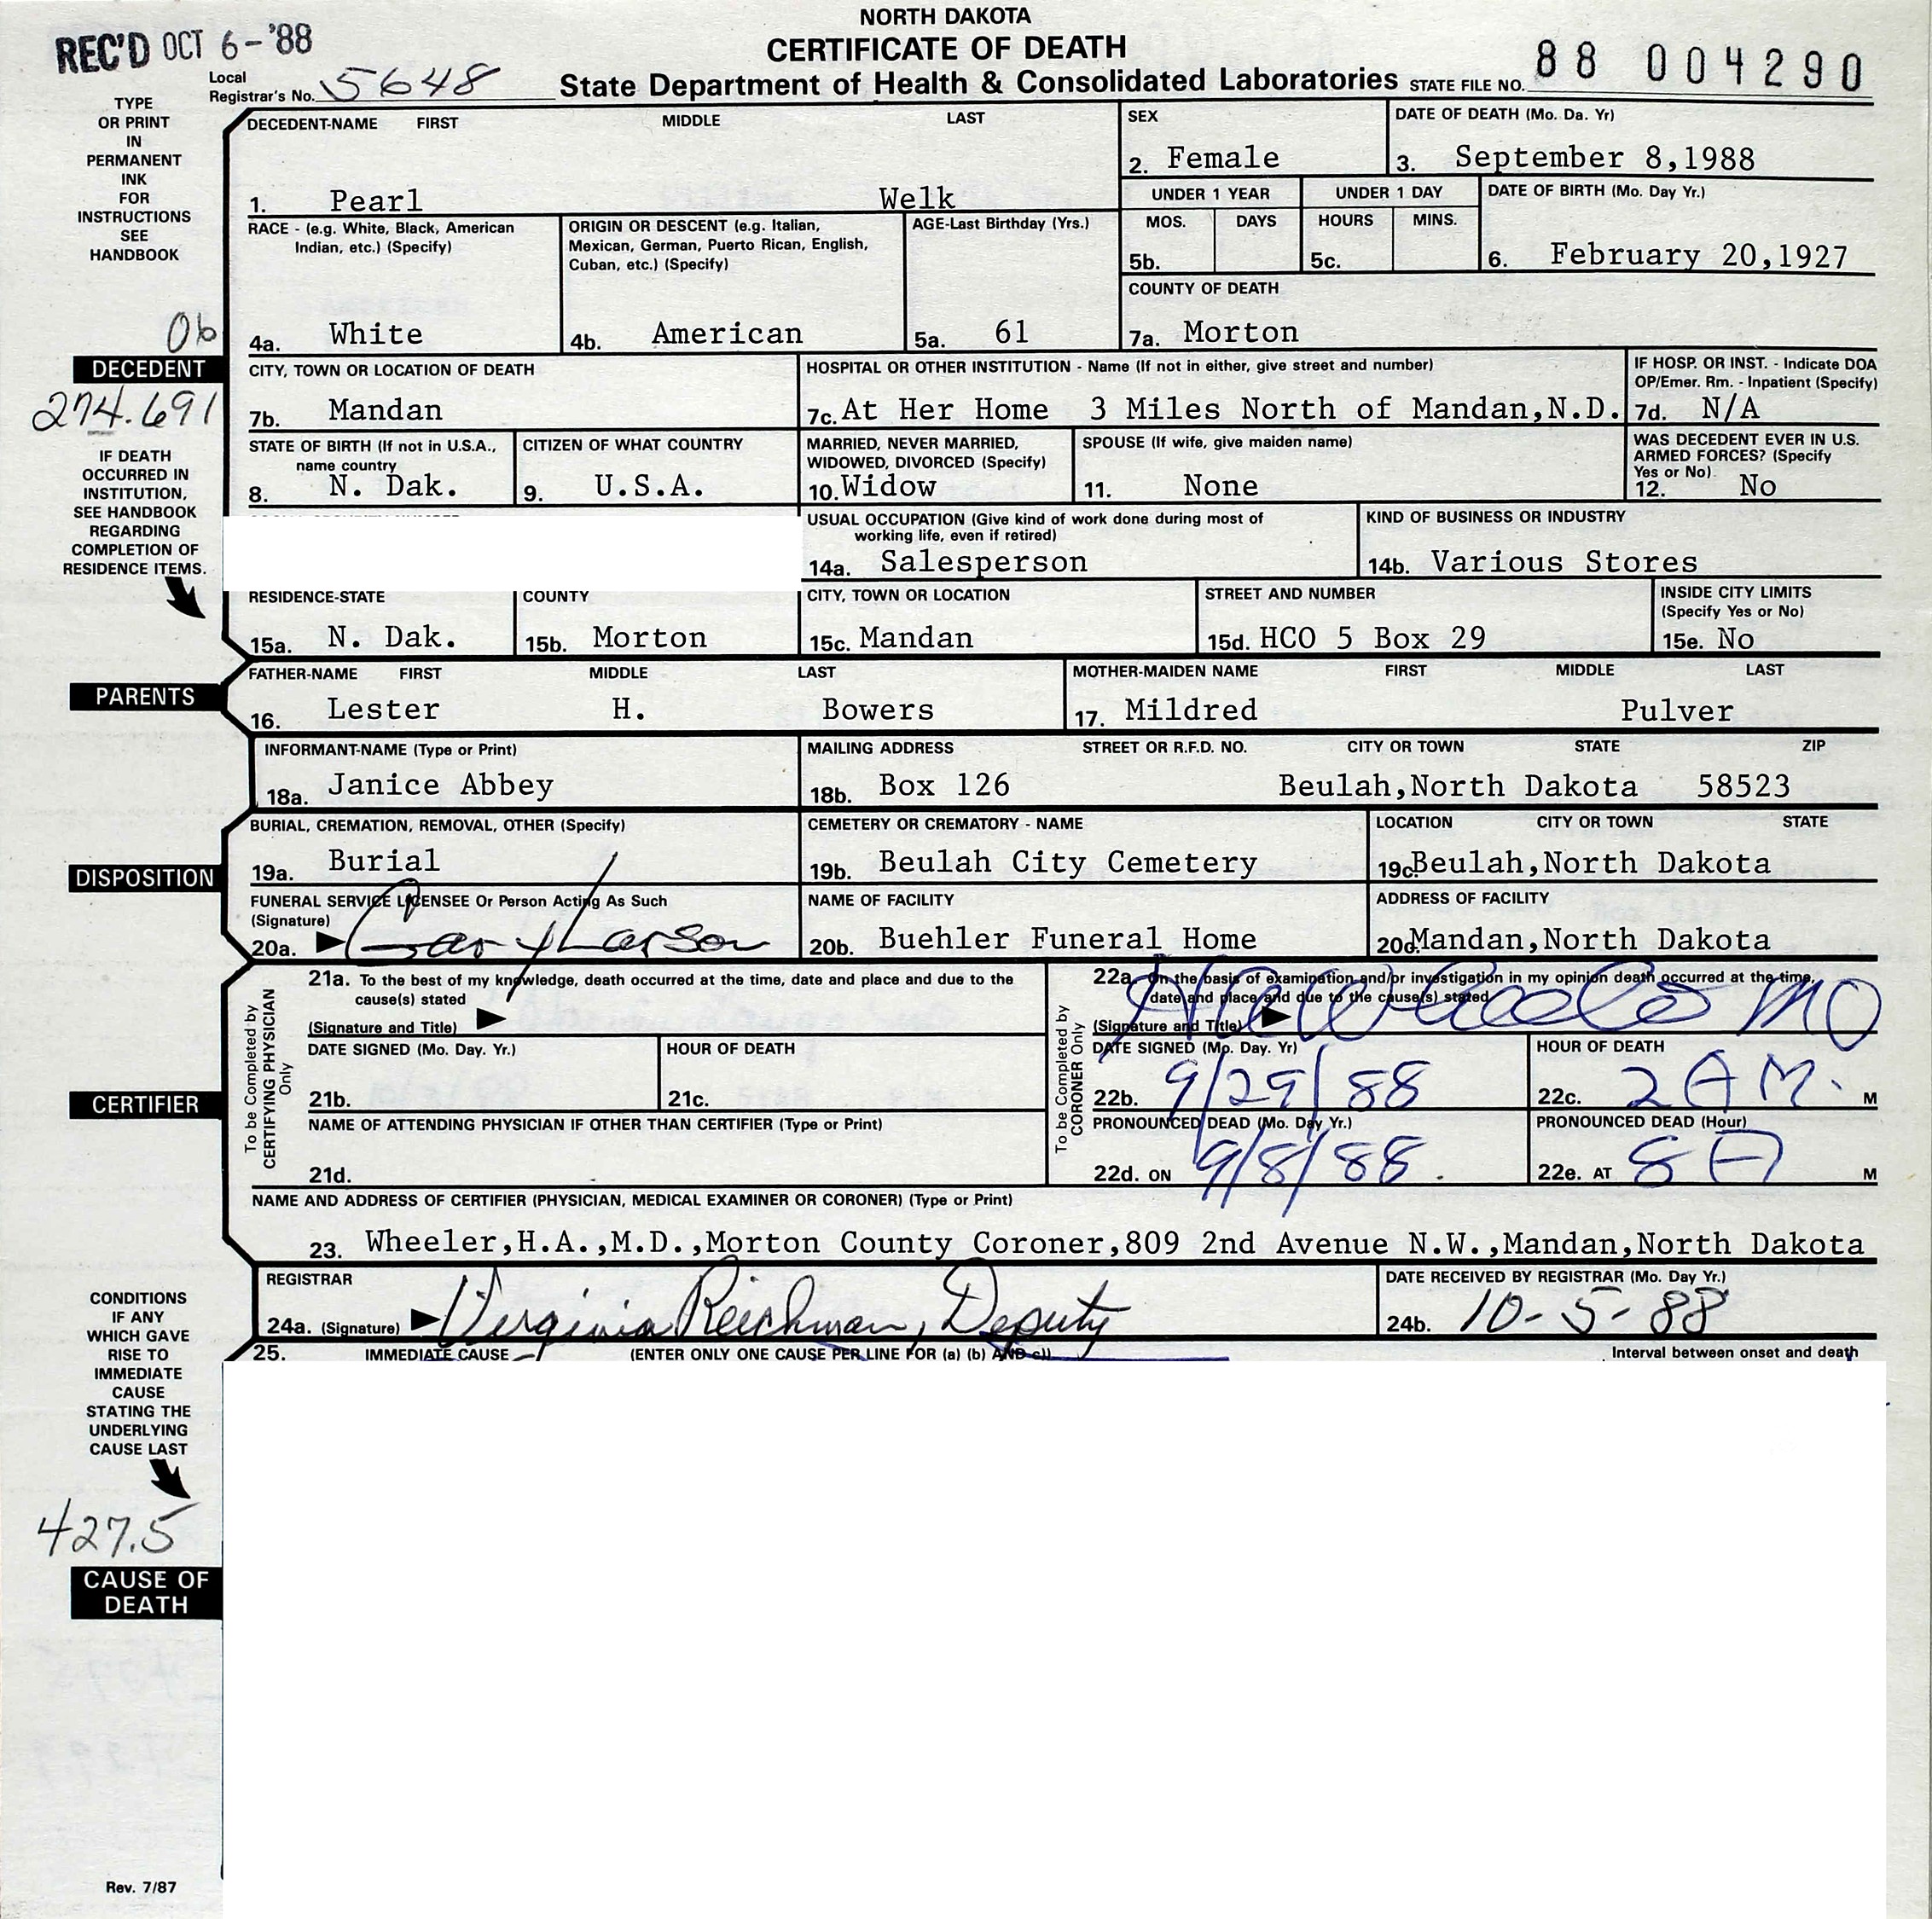 NORTH DAKOTA
REC'D OCT 6-'88
CERTIFICATE OF DEATH
Local Registrar's No. 5648
State Department of Health & Consolidated Laboratories
STATE FILE NO. 88 004290
TYPE OR PRINT IN PERMANENT INK FOR INSTRUCTIONS SEE HANDBOOK
DECEDENT-NAME FIRST MIDDLE LAST
1. Pearl Welk
SEX
2. Female
DATE OF DEATH (Mo. Da. Yr)
3. September 8,1988
RACE - (e.g. White, Black, American Indian, etc.) (Specify)
4a. White
ORIGIN OR DESCENT (e.g. Italian, Mexican, German, Puerto Rican, English, Cuban, etc.) (Specify)
4b. American
AGE-Last Birthday (Yrs.)
5a. 61
UNDER 1 YEAR
MOS. DAYS
5b.
UNDER 1 DAY
HOURS MINS.
5c.
DATE OF BIRTH (Mo. Day Yr.)
6. February 20,1927
COUNTY OF DEATH
7a. Morton
06
DECEDENT
274.691
CITY, TOWN OR LOCATION OF DEATH
7b. Mandan
HOSPITAL OR OTHER INSTITUTION - Name (If not in either, give street and number)
7c. At Her Home 3 Miles North of Mandan,N.D.
IF HOSP. OR INST. - Indicate DOA OP/Emer. Rm. - Inpatient (Specify)
7d. N/A
IF DEATH OCCURRED IN INSTITUTION, SEE HANDBOOK REGARDING COMPLETION OF RESIDENCE ITEMS.
STATE OF BIRTH (If not in U.S.A., name country
8. N. Dak.
CITIZEN OF WHAT COUNTRY
9. U.S.A.
MARRIED, NEVER MARRIED, WIDOWED, DIVORCED (Specify)
10. Widow
SPOUSE (If wife, give maiden name)
11. None
WAS DECEDENT EVER IN U.S. ARMED FORCES? (Specify Yes or No)
12. No
USUAL OCCUPATION (Give kind of work done during most of working life, even if retired)
14a. Salesperson
KIND OF BUSINESS OR INDUSTRY
14b. Various Stores
RESIDENCE-STATE
15a. N. Dak.
COUNTY
15b. Morton
CITY, TOWN OR LOCATION
15c. Mandan
STREET AND NUMBER
15d. HCO 5 Box 29
INSIDE CITY LIMITS (Specify Yes or No)
15e. No
PARENTS
FATHER-NAME FIRST MIDDLE LAST
16. Lester H. Bowers
MOTHER-MAIDEN NAME FIRST MIDDLE LAST
17. Mildred Pulver
INFORMANT-NAME (Type or Print)
18a. Janice Abbey
MAILING ADDRESS STREET OR R.F.D. NO. CITY OR TOWN STATE ZIP
18b. Box 126 Beulah,North Dakota 58523
DISPOSITION
BURIAL, CREMATION, REMOVAL, OTHER (Specify)
19a. Burial
CEMETERY OR CREMATORY - NAME
19b. Beulah City Cemetery
LOCATION CITY OR TOWN STATE
19c Beulah,North Dakota
FUNERAL SERVICE LICENSEE Or Person Acting As Such
(Signature)
20a. Gary Larson
NAME OF FACILITY
20b. Buehler Funeral Home
ADDRESS OF FACILITY
20c Mandan,North Dakota
CERTIFIER
To be Completed by CERTIFYING PHYSICIAN Only
21a. To the best of my knowledge, death occurred at the time, date and place and due to the cause(s) stated
(Signature and Title)
DATE SIGNED (Mo. Day. Yr.)
21b.
HOUR OF DEATH
21c.
NAME OF ATTENDING PHYSICIAN IF OTHER THAN CERTIFIER (Type or Print)
21d.
To be Completed by CORONER Only
22a. On the basis of examination and/or investigation in my opinion death occurred at the time, date and place and due to the cause(s) stated
(Signature and Title) HA Wheeler MD
DATE SIGNED (Mo. Day. Yr)
22b. 9/29/88
HOUR OF DEATH
22c. 2 A M. M
PRONOUNCED DEAD (Mo. Day Yr.)
22d. ON 9/8/88.
PRONOUNCED DEAD (Hour)
22e. AT 8 A M
NAME AND ADDRESS OF CERTIFIER (PHYSICIAN, MEDICAL EXAMINER OR CORONER) (Type or Print)
23. Wheeler,H.A.,M.D.,Morton County Coroner,809 2nd Avenue N.W.,Mandan,North Dakota
REGISTRAR
24a. (Signature) Virginia Reichman, Deputy
DATE RECEIVED BY REGISTRAR (Mo. Day Yr.)
24b. 10-5-88
25. IMMEDIATE CAUSE (ENTER ONLY ONE CAUSE PER LINE FOR (a) (b) AND c)) Interval between onset and death
CONDITIONS IF ANY WHICH GAVE RISE TO IMMEDIATE CAUSE STATING THE UNDERLYING CAUSE LAST
427.5
CAUSE OF DEATH
Rev. 7/87